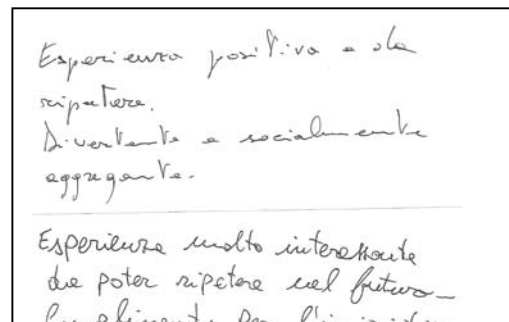 Esperienza positiva e da
ripetere.
Divertente e socialmente
aggregante.
Esperienza molto interessante
da poter ripetere nel futuro_
per l'iniziativa